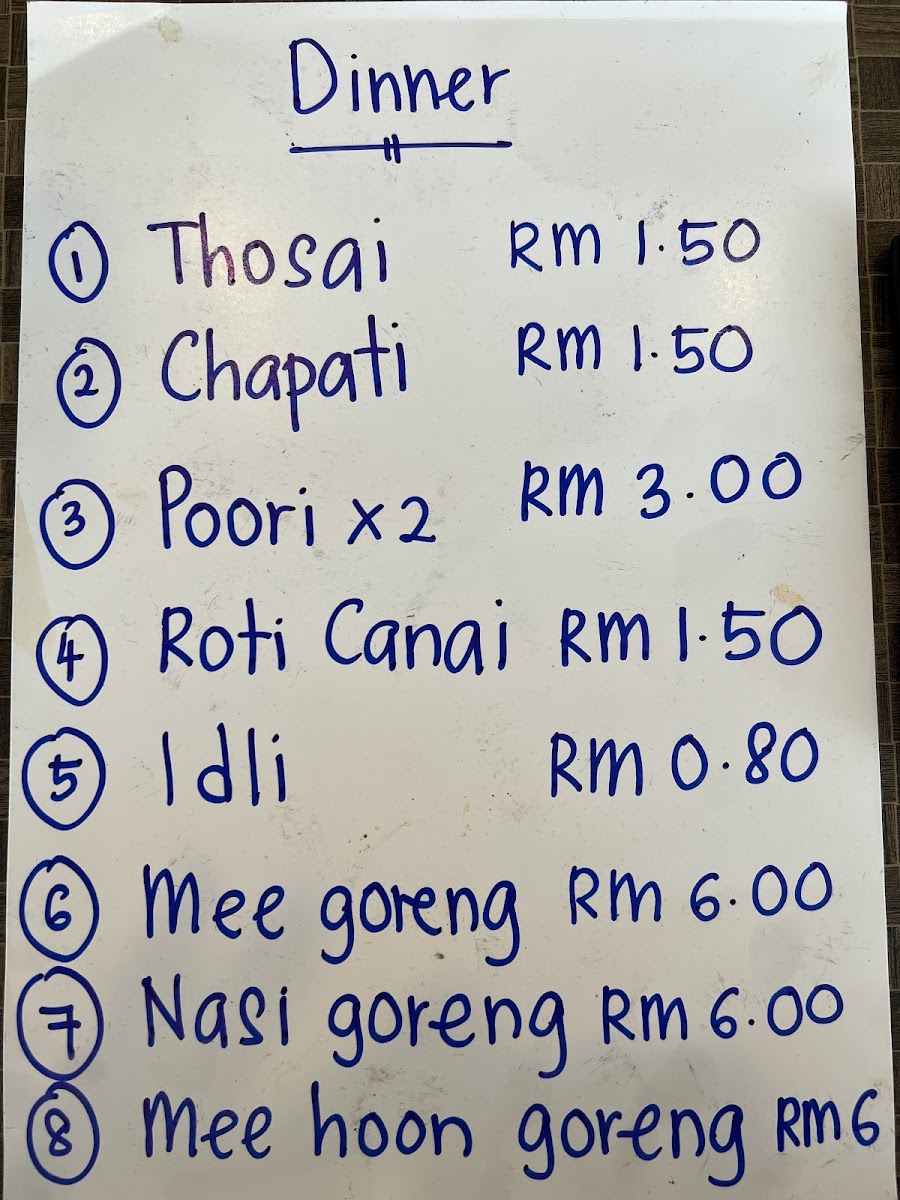 Dinner
① Thosai RM 1.50
② Chapati RM 1.50
③ Poori x2 RM 3.00
④ Roti Canai RM 1.50
⑤ Idli RM 0.80
⑥ Mee goreng RM 6.00
⑦ Nasi goreng RM 6.00
⑧ Mee hoon goreng RM 6